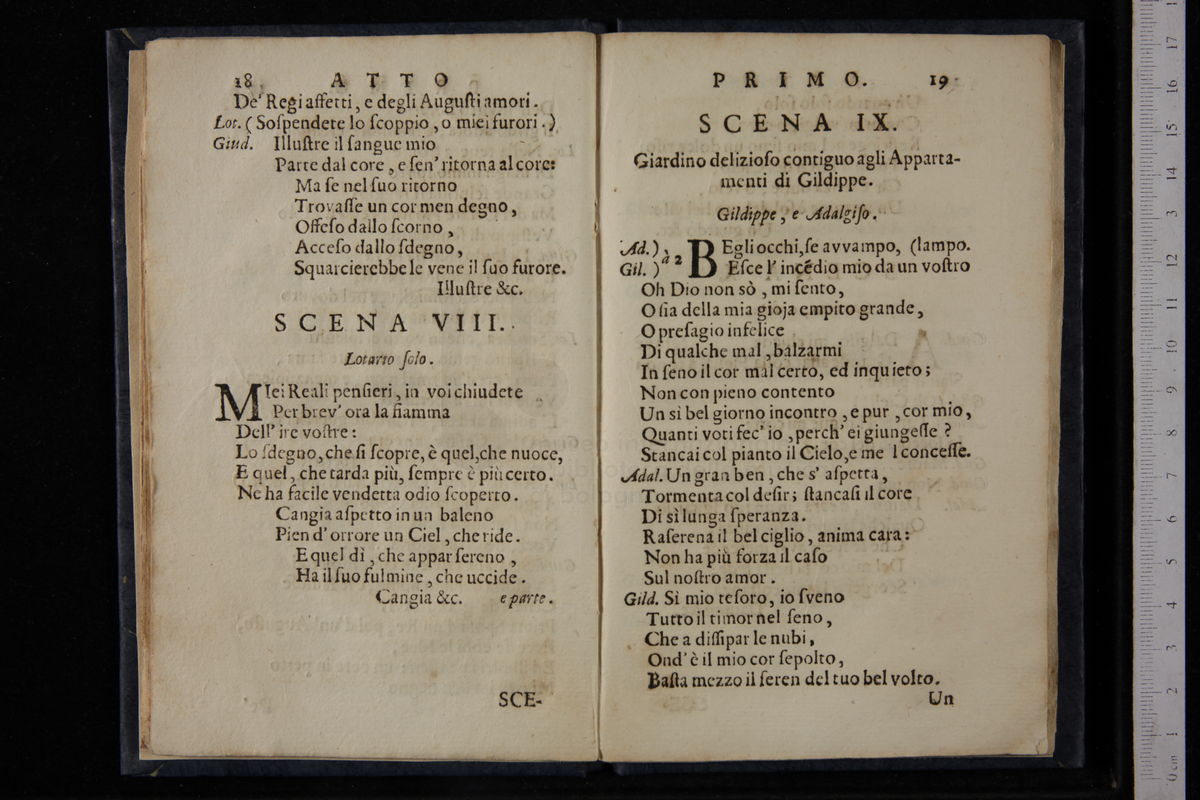 18 ATTO
De' Regi affetti, e degli Augusti amori.
Lot. (Soſpendete lo ſcoppio, o miei furori.)
Giud. Illuſtre il ſangue mio
Parte dal core, e ſen' ritorna al core:
Ma ſe nel ſuo ritorno
Trovaſſe un cor men degno,
Offeſo dallo ſcorno,
Acceſo dallo ſdegno,
Squarcierebbe le vene il ſuo furore.
Illuſtre &c.
SCENA VIII.
Lotario ſolo.
MIei Reali penſieri, in voi chiudete
Per brev' ora la fiamma
Dell' ire voſtre:
Lo ſdegno, che ſi ſcopre, è quel, che nuoce,
E quel, che tarda più, ſempre è più certo.
Ne ha facile vendetta odio ſcoperto.
Cangia aſpetto in un baleno
Pien d' orrore un Ciel, che ride.
E quel dì, che appar ſereno,
Ha il ſuo fulmine, che uccide.
Cangia &c. e parte.
SCE-
PRIMO. 19
SCENA IX.
Giardino delizioſo contiguo agli Apparta-
menti di Gildippe.
Gildippe, e Adalgiſo.
Ad.) a 2 BEgli occhi, ſe avvampo, (lampo.
Gil. ) Eſce l' incēdio mio da un voſtro
Oh Dio non sò, mi ſento,
O ſia della mia gioja empito grande,
O preſagio infelice
Di qualche mal, balzarmi
In ſeno il cor mal certo, ed inquieto;
Non con pieno contento
Un sì bel giorno incontro, e pur, cor mio,
Quanti voti fec' io, perch' ei giungeſſe?
Stancai col pianto il Cielo, e me l conceſſe.
Adal. Un gran ben, che s' aſpetta,
Tormenta col deſir; ſtancaſi il core
Di sì lunga ſperanza.
Raſerena il bel ciglio, anima cara:
Non ha più forza il caſo
Sul noſtro amor.
Gild. Sì mio teſoro, io ſveno
Tutto il timor nel ſeno,
Che a diſſipar le nubi,
Ond' è il mio cor ſepolto,
Baſta mezzo il ſeren del tuo bel volto.
Un
0 cm 1 2 3 4 5 6 7 8 9 10 11 12 13 14 15 16 17